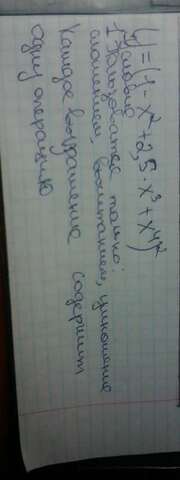 y = (1 - x² + 2,5 · x³ + x⁴)²
Пользоваться только:
сложением, вычитанием, умножение
Каждое выражение содержит
одну операцию